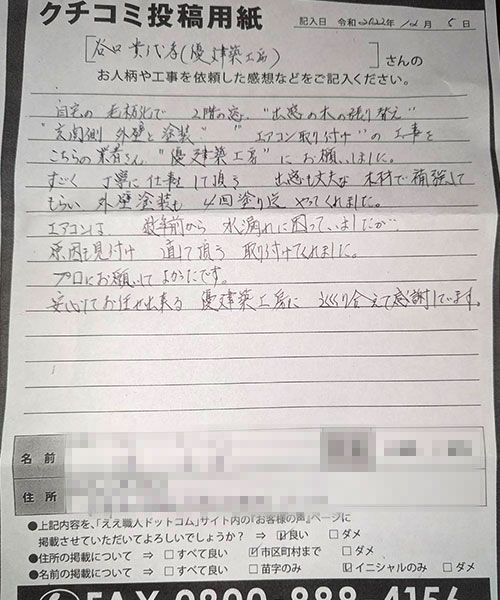 クチコミ投稿用紙
記入日 令和2022年12月5日
[谷口 貴代孝(優建築工房)]さんの
お人柄や工事を依頼した感想などをご記入ください。
自宅の老朽化で 2階の窓、"出窓の木の張り替え"
"玄関側 外壁と塗装" "エアコン取り付け"の工事を
こちらの業者さん "優建築工房"にお願いしました。
すごく 丁寧に仕事をして頂き 出窓も丈夫な木材で補強して
もらい 外壁塗装も 4回塗り迄 やってくれました。
エアコンは 数年前から 水漏れに困っていましたが
原因も見付け 直して頂き 取り付けてくれました。
プロにお願いしてよかったです。
安心してお任せ出来る 優建築工房に めぐり合えて感謝しています。
名前
住所
●上記内容を、「ええ職人ドットコム」サイト内の「お客様の声」ページに
掲載させていただいてよろしいでしょうか? ⇒ ☑良い □ダメ
●住所の掲載について ⇒ □すべて良い ☑市区町村まで □ダメ
●名前の掲載について ⇒ □すべて良い □苗字のみ ☑イニシャルのみ □ダメ
FAX 0800-888-4156